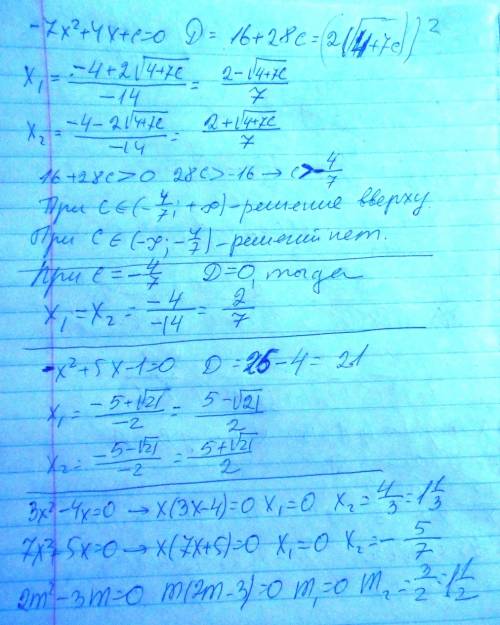 -7x²+4x+c=0 D = 16+28c = (2√(4+7c))²
x₁ = (-4+2√(4+7c))/(-14) = (2-√(4+7c))/7
x₂ = (-4-2√(4+7c))/(-14) = (2+√(4+7c))/7
16+28c>0 28c>-16 → c>-4/7
При c∈(-4/7; +∞) - решение вверху.
При c∈(-∞; -4/7) - решений нет.
При c = -4/7 D=0, тогда
x₁ = x₂ = -4/-14 = 2/7
-x²+5x-1=0 D = 25-4 = 21
x₁ = (-5+√21)/(-2) = (5-√21)/2
x₂ = (-5-√21)/(-2) = (5+√21)/2
3x²-4x=0 → x(3x-4)=0 x₁=0 x₂=4/3=1 1/3
7x²+5x=0 → x(7x+5)=0 x₁=0 x₂=-5/7
2m²-3m=0 m(2m-3)=0 m₁=0 m₂=3/2=1 1/2